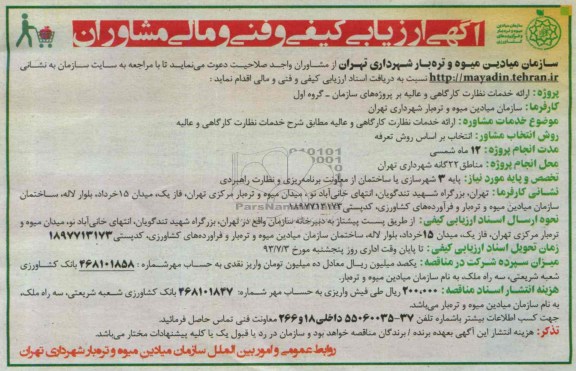 آگهی ارزیابی کیفی و فنی و مالی مشاوران
سازمان میادین میوه و تره‌بار شهرداری تهران از مشاوران واجد صلاحیت دعوت می‌نماید تا با مراجعه به سایت سازمان به نشانی
http://mayadin.tehran.ir نسبت به دریافت اسناد ارزیابی کیفی و فنی و مالی اقدام نماید :
پروژه : ارائه خدمات نظارت کارگاهی و عالیه بر پروژه‌های سازمان - گروه اول
کارفرما : سازمان میادین میوه و تره‌بار شهرداری تهران
موضوع خدمات مشاوره : ارائه خدمات نظارت کارگاهی و عالیه مطابق شرح خدمات نظارت کارگاهی و عالیه
روش انتخاب مشاور : انتخاب بر اساس روش تعرفه
مدت انجام پروژه : ۱۲ ماه شمسی
محل انجام پروژه : مناطق ۲۲گانه شهرداری تهران
تخصص و پایه مورد نیاز : پایه ۳ شهرسازی یا ساختمان از معاونت برنامه‌ریزی و نظارت راهبردی
نشانی کارفرما : تهران، بزرگراه شهید تندگویان، انتهای خانی‌آباد نو، میدان میوه و تره‌بار مرکزی تهران، فاز یک، میدان ۱۵خرداد، بلوار لاله، ساختمان
سازمان میادین میوه و تره‌بار و فرآورده‌های کشاورزی، کدپستی ۱۸۹۷۷۱۳۱۷۳
نحوه ارسال اسناد ارزیابی کیفی : از طریق پست پیشتاز به دبیرخانه سازمان واقع در تهران، بزرگراه شهید تندگویان، انتهای خانی‌آباد نو، میدان میوه و
تره‌بار مرکزی تهران، فاز یک، میدان ۱۵ خرداد، بلوار لاله، ساختمان سازمان میادین میوه و تره‌بار و فرآورده‌های کشاورزی، کدپستی ۱۸۹۷۷۱۳۱۷۳
زمان تحویل اسناد ارزیابی کیفی : تا پایان وقت اداری روز پنجشنبه مورخ ۹۳/۷/۳
میزان سپرده شرکت در مناقصه : یکصد میلیون ریـال معادل ده میلیون تومان واریز نقدی به حساب مهر شماره : ۴۶۸۱۰۱۸۵۸ بانک کشاورزی
شعبه شریعتی، سه راه ملک، به نام سازمان میادین میوه و تره‌بار.
هزینه انتشار اسناد مناقصه : ۲۰۰،۰۰۰ ریال طی فیش واریزی به حساب مهر شماره : ۴۶۸۱۰۱۸۳۷ بانک کشاورزی شعبه شریعتی، سه راه ملک،
به نام سازمان میادین میوه و تره‌بار می‌باشد.
جهت کسب اطلاعات بیشتر باشماره تلفن ۳۷-۵۵۰۶۰۰۳۵ داخلی ۱۸ و ۲۶۶ معاونت فنی تماس حاصل فرمائید.
تذکر : هزینه انتشار این آگهی بعهده برنده / برندگان مناقصه خواهد بود و سازمان در رد یا قبول یک یا کلیه پیشنهادات مختار می‌باشد.
روابط عمومی و امور بین الملل سازمان میادین میوه و تره‌بار شهرداری تهران